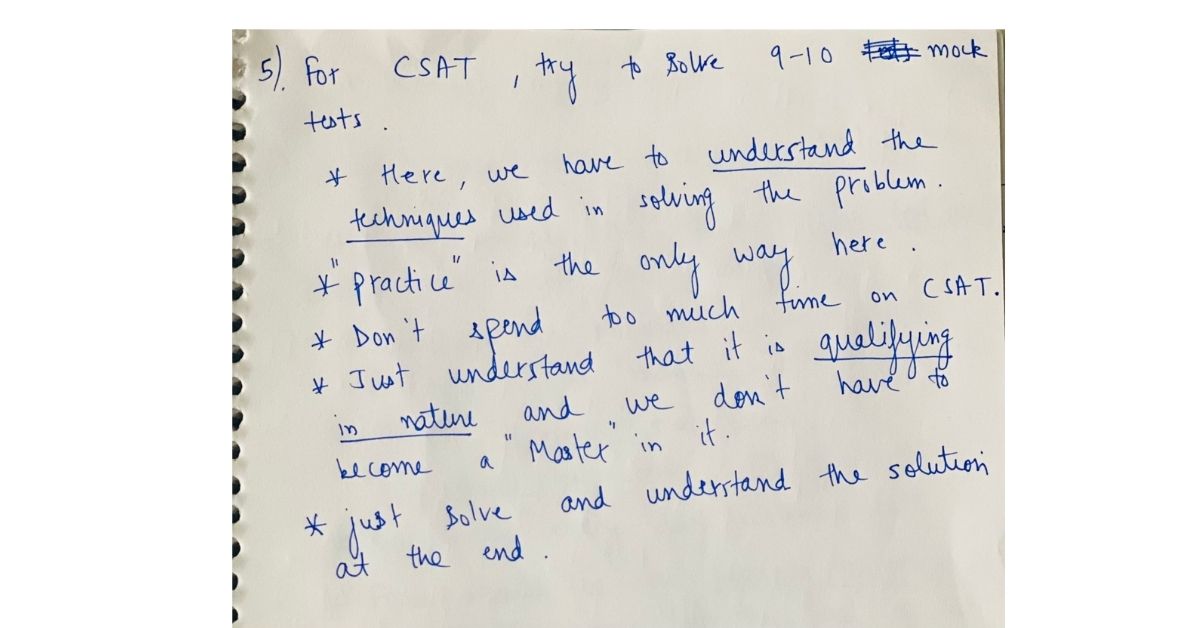 5). For CSAT, try to solve 9-10 mock
tests.
* Here, we have to understand the
techniques used in solving the problem.
* "Practice" is the only way here.
* Don't spend too much time on CSAT.
* Just understand that it is qualifying
in nature and we don't have to
become a "Master" in it.
* just solve and understand the solution
at the end.